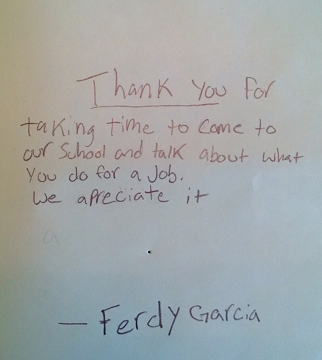 Thank You for
taking time to come to
our School and talk about what
You do for a Job.
We apreciate it
— Ferdy Garcia